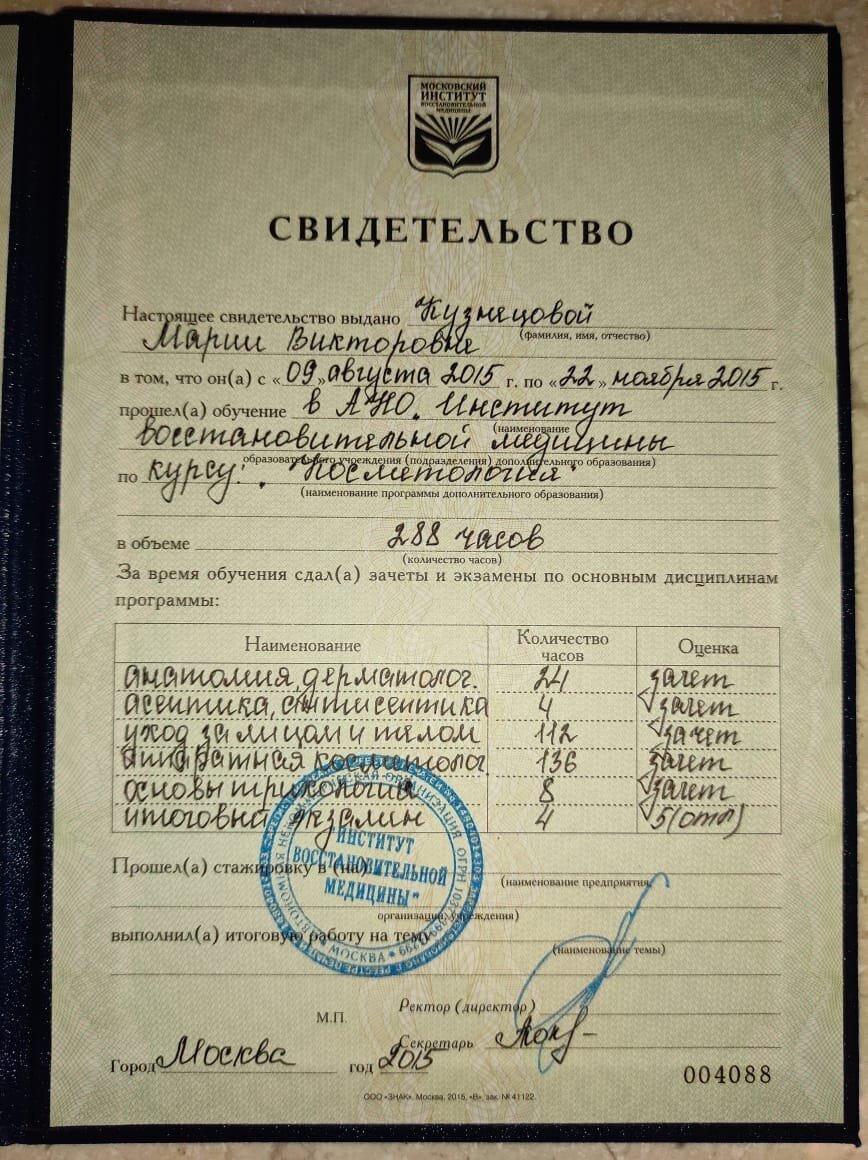 МОСКОВСКИЙ
ИНСТИТУТ
ВОССТАНОВИТЕЛЬНОЙ
МЕДИЦИНЫ
СВИДЕТЕЛЬСТВО
Настоящее свидетельство выдано Кузнецовой
(фамилия, имя, отчество)
Марии Викторовне
в том, что он(а) с «09» августа 2015 г. по «22» ноября 2015 г.
прошел(а) обучение в АНО. Институт
(наименование
восстановительной медицины
образовательного учреждения (подразделения) дополнительного образования)
по курсу: "Косметология"
(наименование программы дополнительного образования)
в объеме 288 часов
(количество часов)
За время обучения сдал(а) зачеты и экзамены по основным дисциплинам
программы:
Наименование Количество часов Оценка
анатомия, дерматолог. 24 зачет
асептика, антисептика 4 зачет
уход за лицом и телом 112 зачет
аппаратная косметолог. 136 зачет
основы трихологии 8 зачет
итоговый экзамен 4 5(отл)
Прошел(а) стажировку в (на)
(наименование предприятия,
организации, учреждения)
выполнил(а) итоговую работу на тему
(наименование темы)
"ИНСТИТУТ
ВОССТАНОВИТЕЛЬНОЙ
МЕДИЦИНЫ"
МОСКВА
М.П.
Ректор (директор)
Секретарь
Город Москва год 2015
004088
ООО «ЗНАК». Москва, 2015, «В», зак. № 41122.